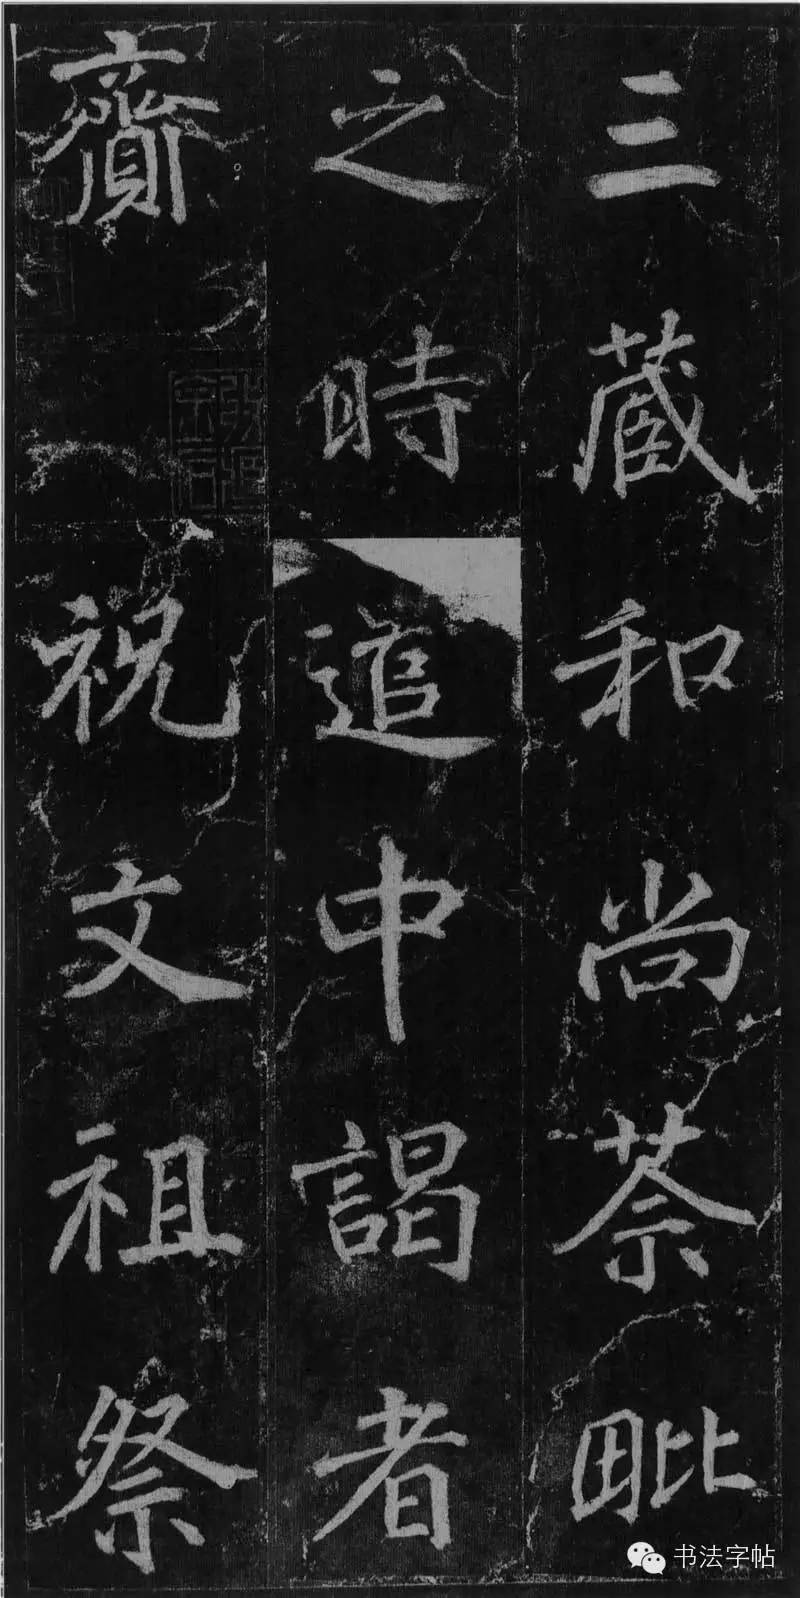 三藏和尚荼毗
之時追中謁者
齎祝文祖祭
书法字帖